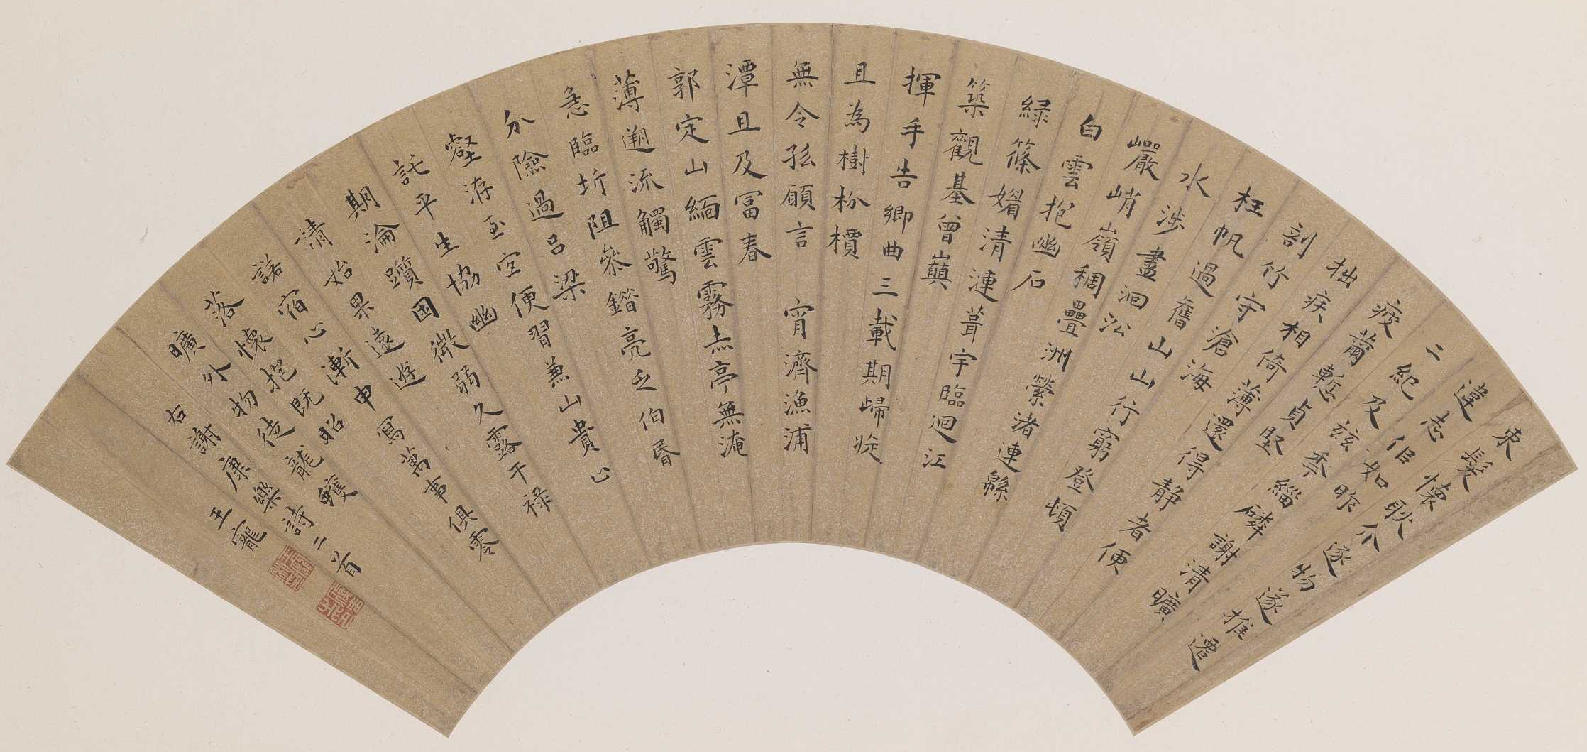 束髮懷耿介逐物遂推遷
違志佀如昨
二紀及茲年緇磷謝清曠
疲薾慙貞堅
拙疾相倚薄還得靜者便
剖竹守滄海
枉帆過舊山山行窮登頓
水涉盡洄沿
巖峭嶺稠疊洲縈渚連綿
白雲抱幽石
綠篠媚清漣葺宇臨迴江
築觀基曾巔
揮手告鄉曲三載期歸旋
且為樹枌檟
無令孤願言 宵濟漁浦
潭旦及富春
郭定山緬雲霧赤亭無淹
薄遡流觸驚
急臨圻阻參錯亮乏伯昏
分險過呂梁
壑洊至宜便習兼山貴止
託平生協幽
期淪躓困微弱久露干祿
請始果遠遊
諾宿心漸申寫萬事俱零
落懷抱既昭
曠外物徒龍蠖
右謝康樂詩二首
王寵